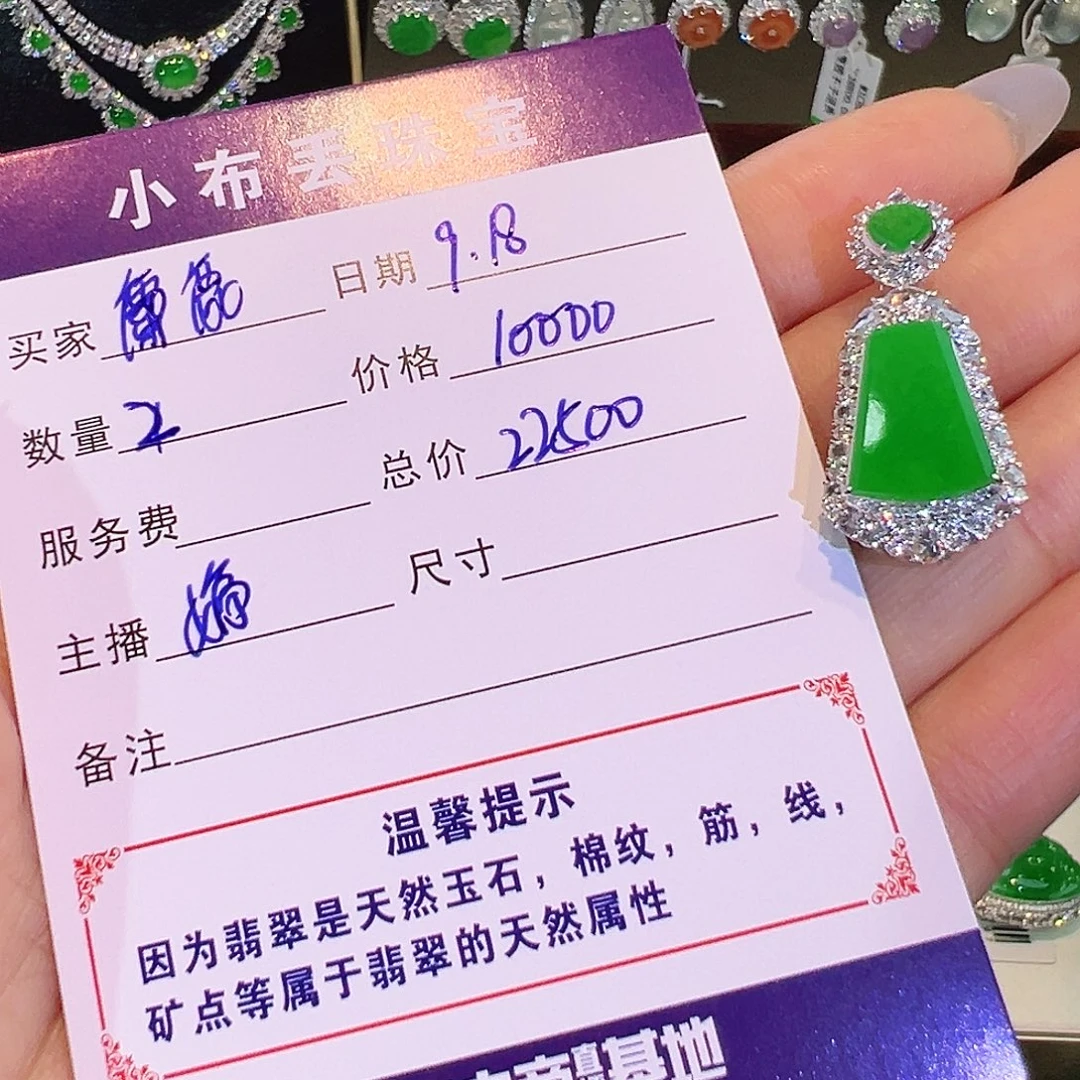 小布丢珠宝
买家 日期 9.18
数量 2 价格 10000
服务费 总价 22500
主播 尺寸
备注
温馨提示
因为翡翠是天然玉石，棉纹，筋，线，
矿点等属于翡翠的天然属性
基地